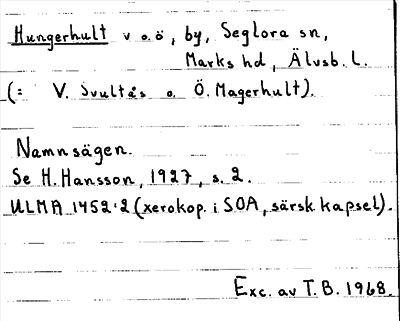 Hungerhult v o. ö, by, Seglora sn,
Marks hd, Älvsb. l.
(= V. Svultås o. Ö. Magerhult).
Namnsägen.
Se H. Hansson, 1927, s. 2.
ULMA 1452:2 (xerokop. i SOA, särsk. kapsel).
Exc. av T. B. 1968.